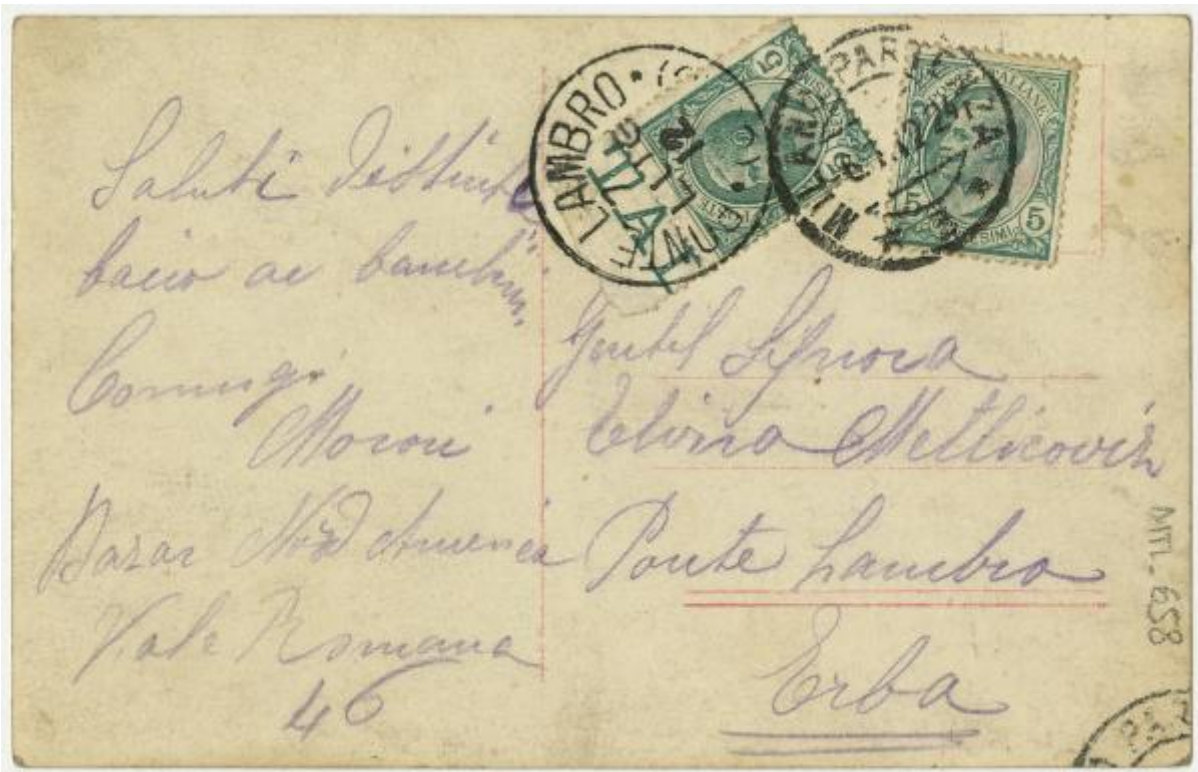 Saluti distinti
bacio ai bambini
Coniugi
Moroni
Bazar Nord America
Viale Romana
46
PONTE LAMBRO
12
MILANO PARTENZA
5
5
Gentil Signora
Elvira Metlicovich
Ponte Lambro
Erba
MTL-658
PAR